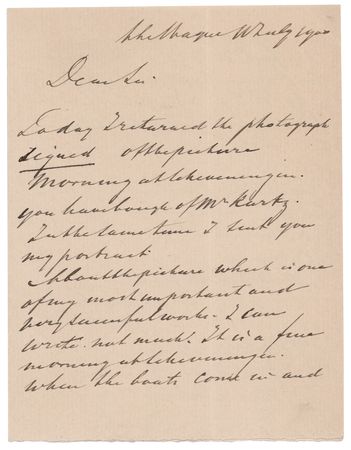 the Hague July 1900
Dear Sir
To day I returned the photograph
signed of the picture
Morning at Scheveningen.
you have bough of Mr Kurtz.
In the same time I sent you
my portrait.
About the picture which is one
of my most important and
very succesful works. I can
write not much. It is a fine
morning at Scheveningen.
when the boats come in and